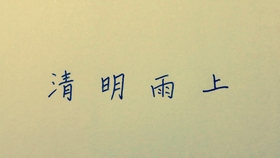 清明雨上